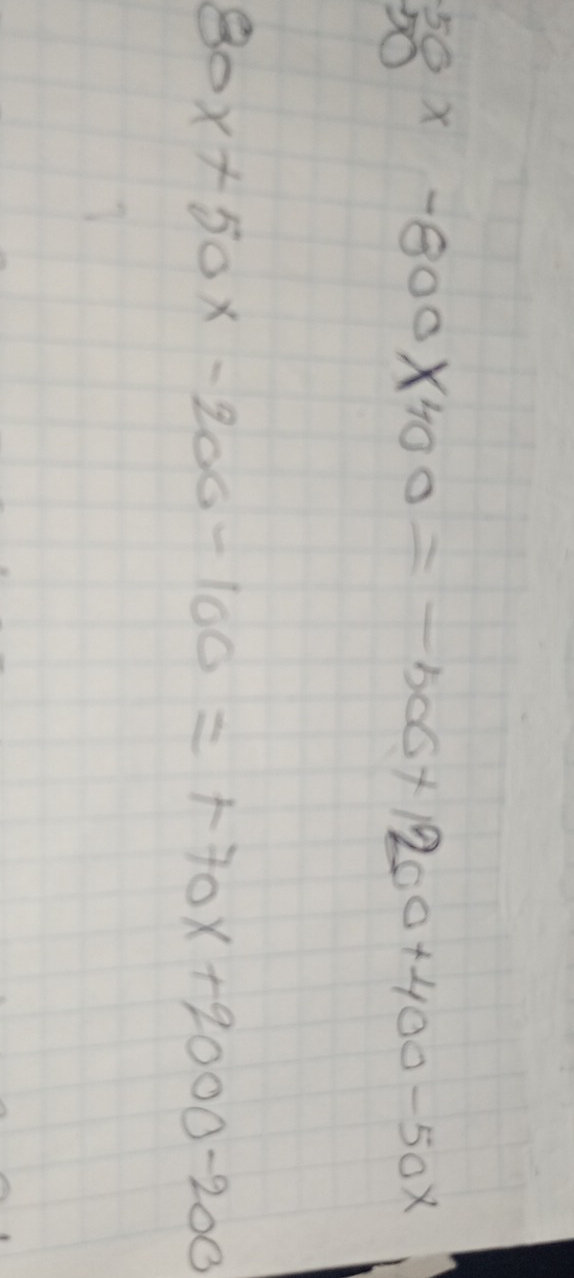 50x -800x400 = -500+1200+400-50x
50
80x+50x-200-100=+70x+2000-200